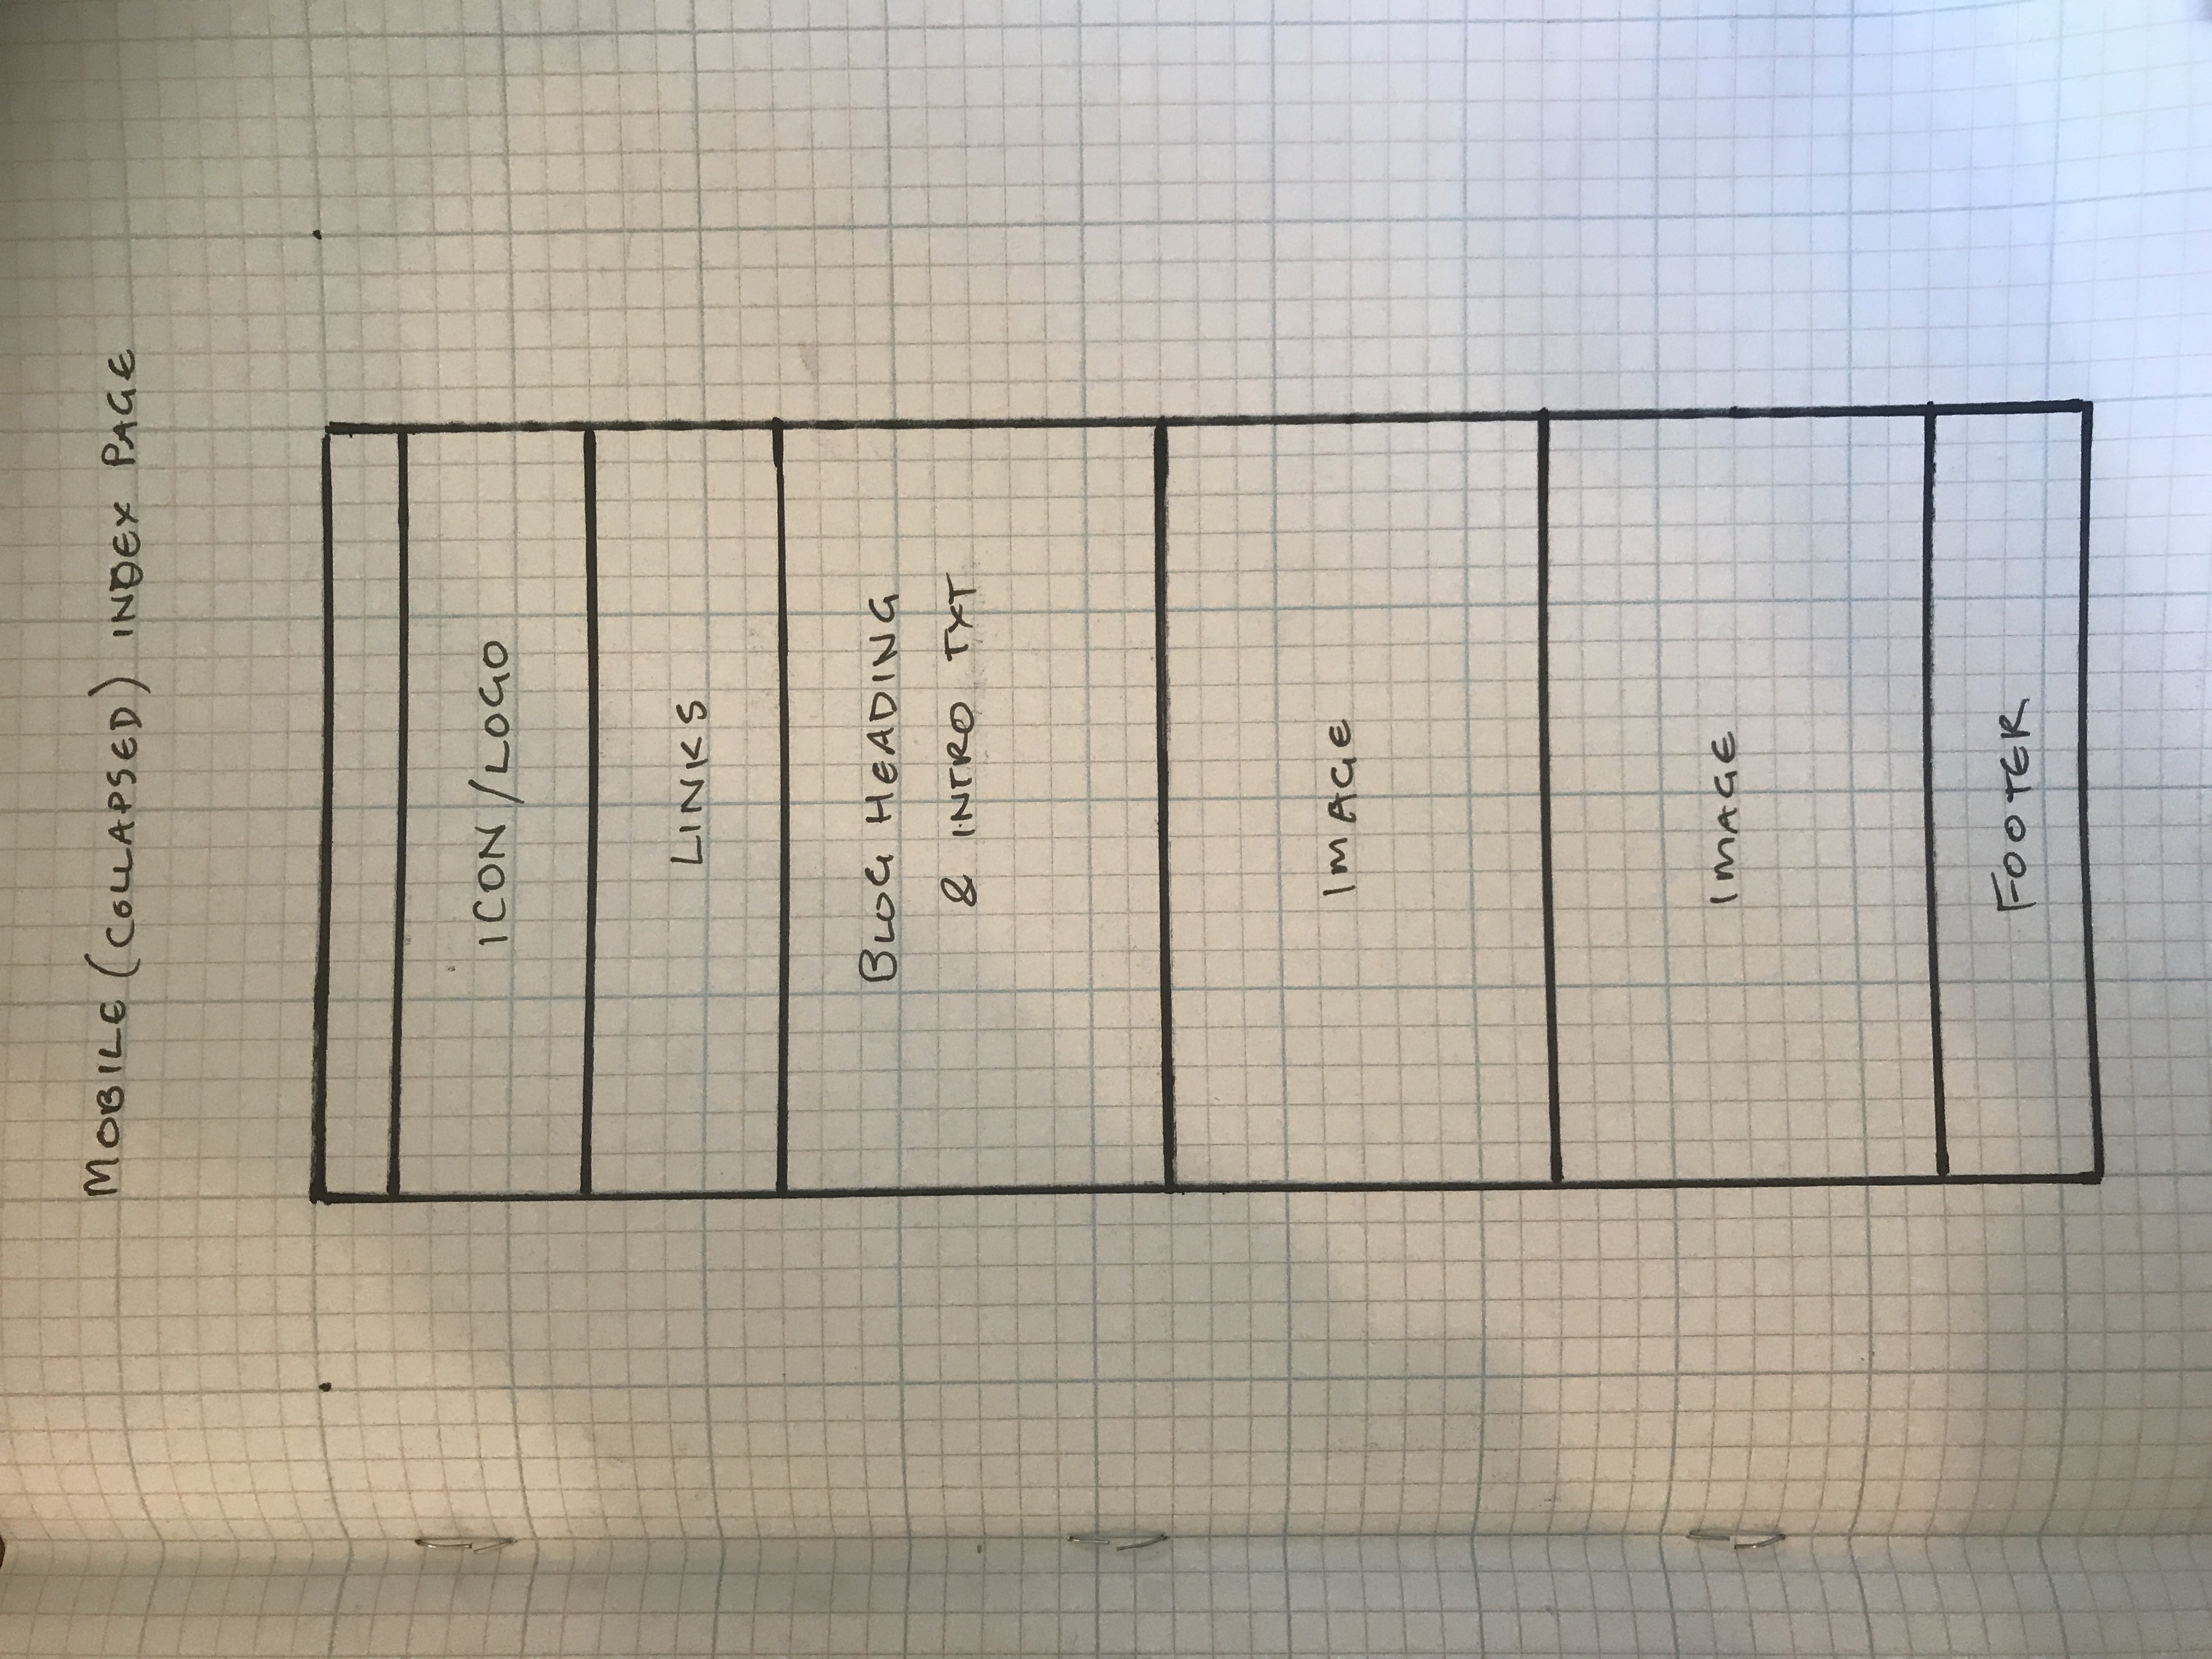 MOBILE (COLLAPSED) INDEX PAGE
ICON/LOGO
LINKS
BLOG HEADING
& INTRO TXT
IMAGE
IMAGE
FOOTER